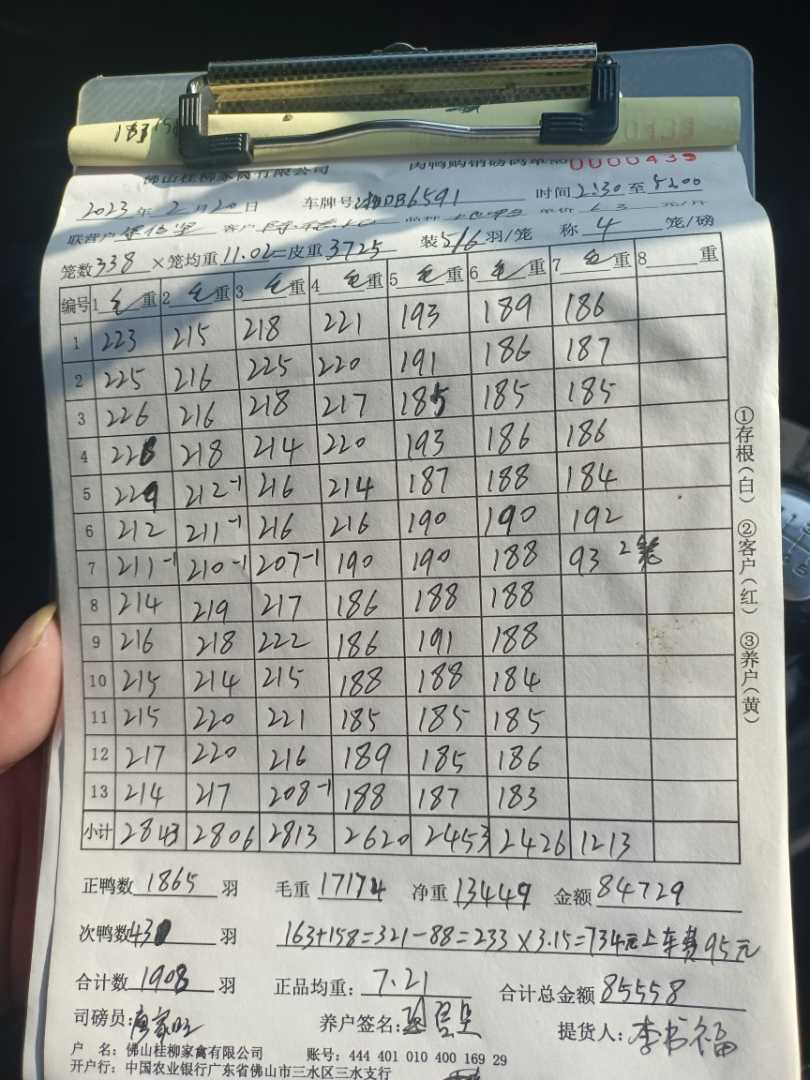 佛山桂柳家禽有限公司 肉鸭购销磅码单 0000439
2023年2月20日 车牌号 DB6591 时间 2:30 至 5200
联营户 客户
笼数 338 ×笼均重 11.02=皮重 3725 装 5/6 羽/笼 称 4 笼/磅
编号 1 毛 重 2 毛 重 3 毛 重 4 毛 重 5 毛 重 6 毛 重 7 毛 重 8 重
1 223 215 218 221 193 189 186
2 225 216 225 220 191 186 187
3 226 216 218 217 185 185 185
4 226 218 214 220 193 186 186
5 229 212-1 216 214 187 188 184
6 212 211-1 216 216 190 190 192
7 211-1 210-1 207-1 190 190 188 93 2笼
8 214 219 217 186 188 188
9 216 218 222 186 191 188
10 215 214 215 188 188 184
11 215 220 221 185 185 185
12 217 220 216 189 185 186
13 214 217 208-1 188 187 183
小计 2843 2806 2813 2620 2453 2426 1213
①存根(白) ②客户(红) ③养户(黄)
正鸭数 1865 羽 毛重 17174 净重 13449 金额 84729
次鸭数 43 羽 163+158=321-88=233×3.15=734元上车费95元
合计数 1908 羽 正品均重: 7.21 合计总金额 85558
司磅员: 养户签名: 提货人: 李书福
户 名: 佛山桂柳家禽有限公司 账号: 444 401 010 400 169 29
开户行: 中国农业银行广东省佛山市三水区三水支行